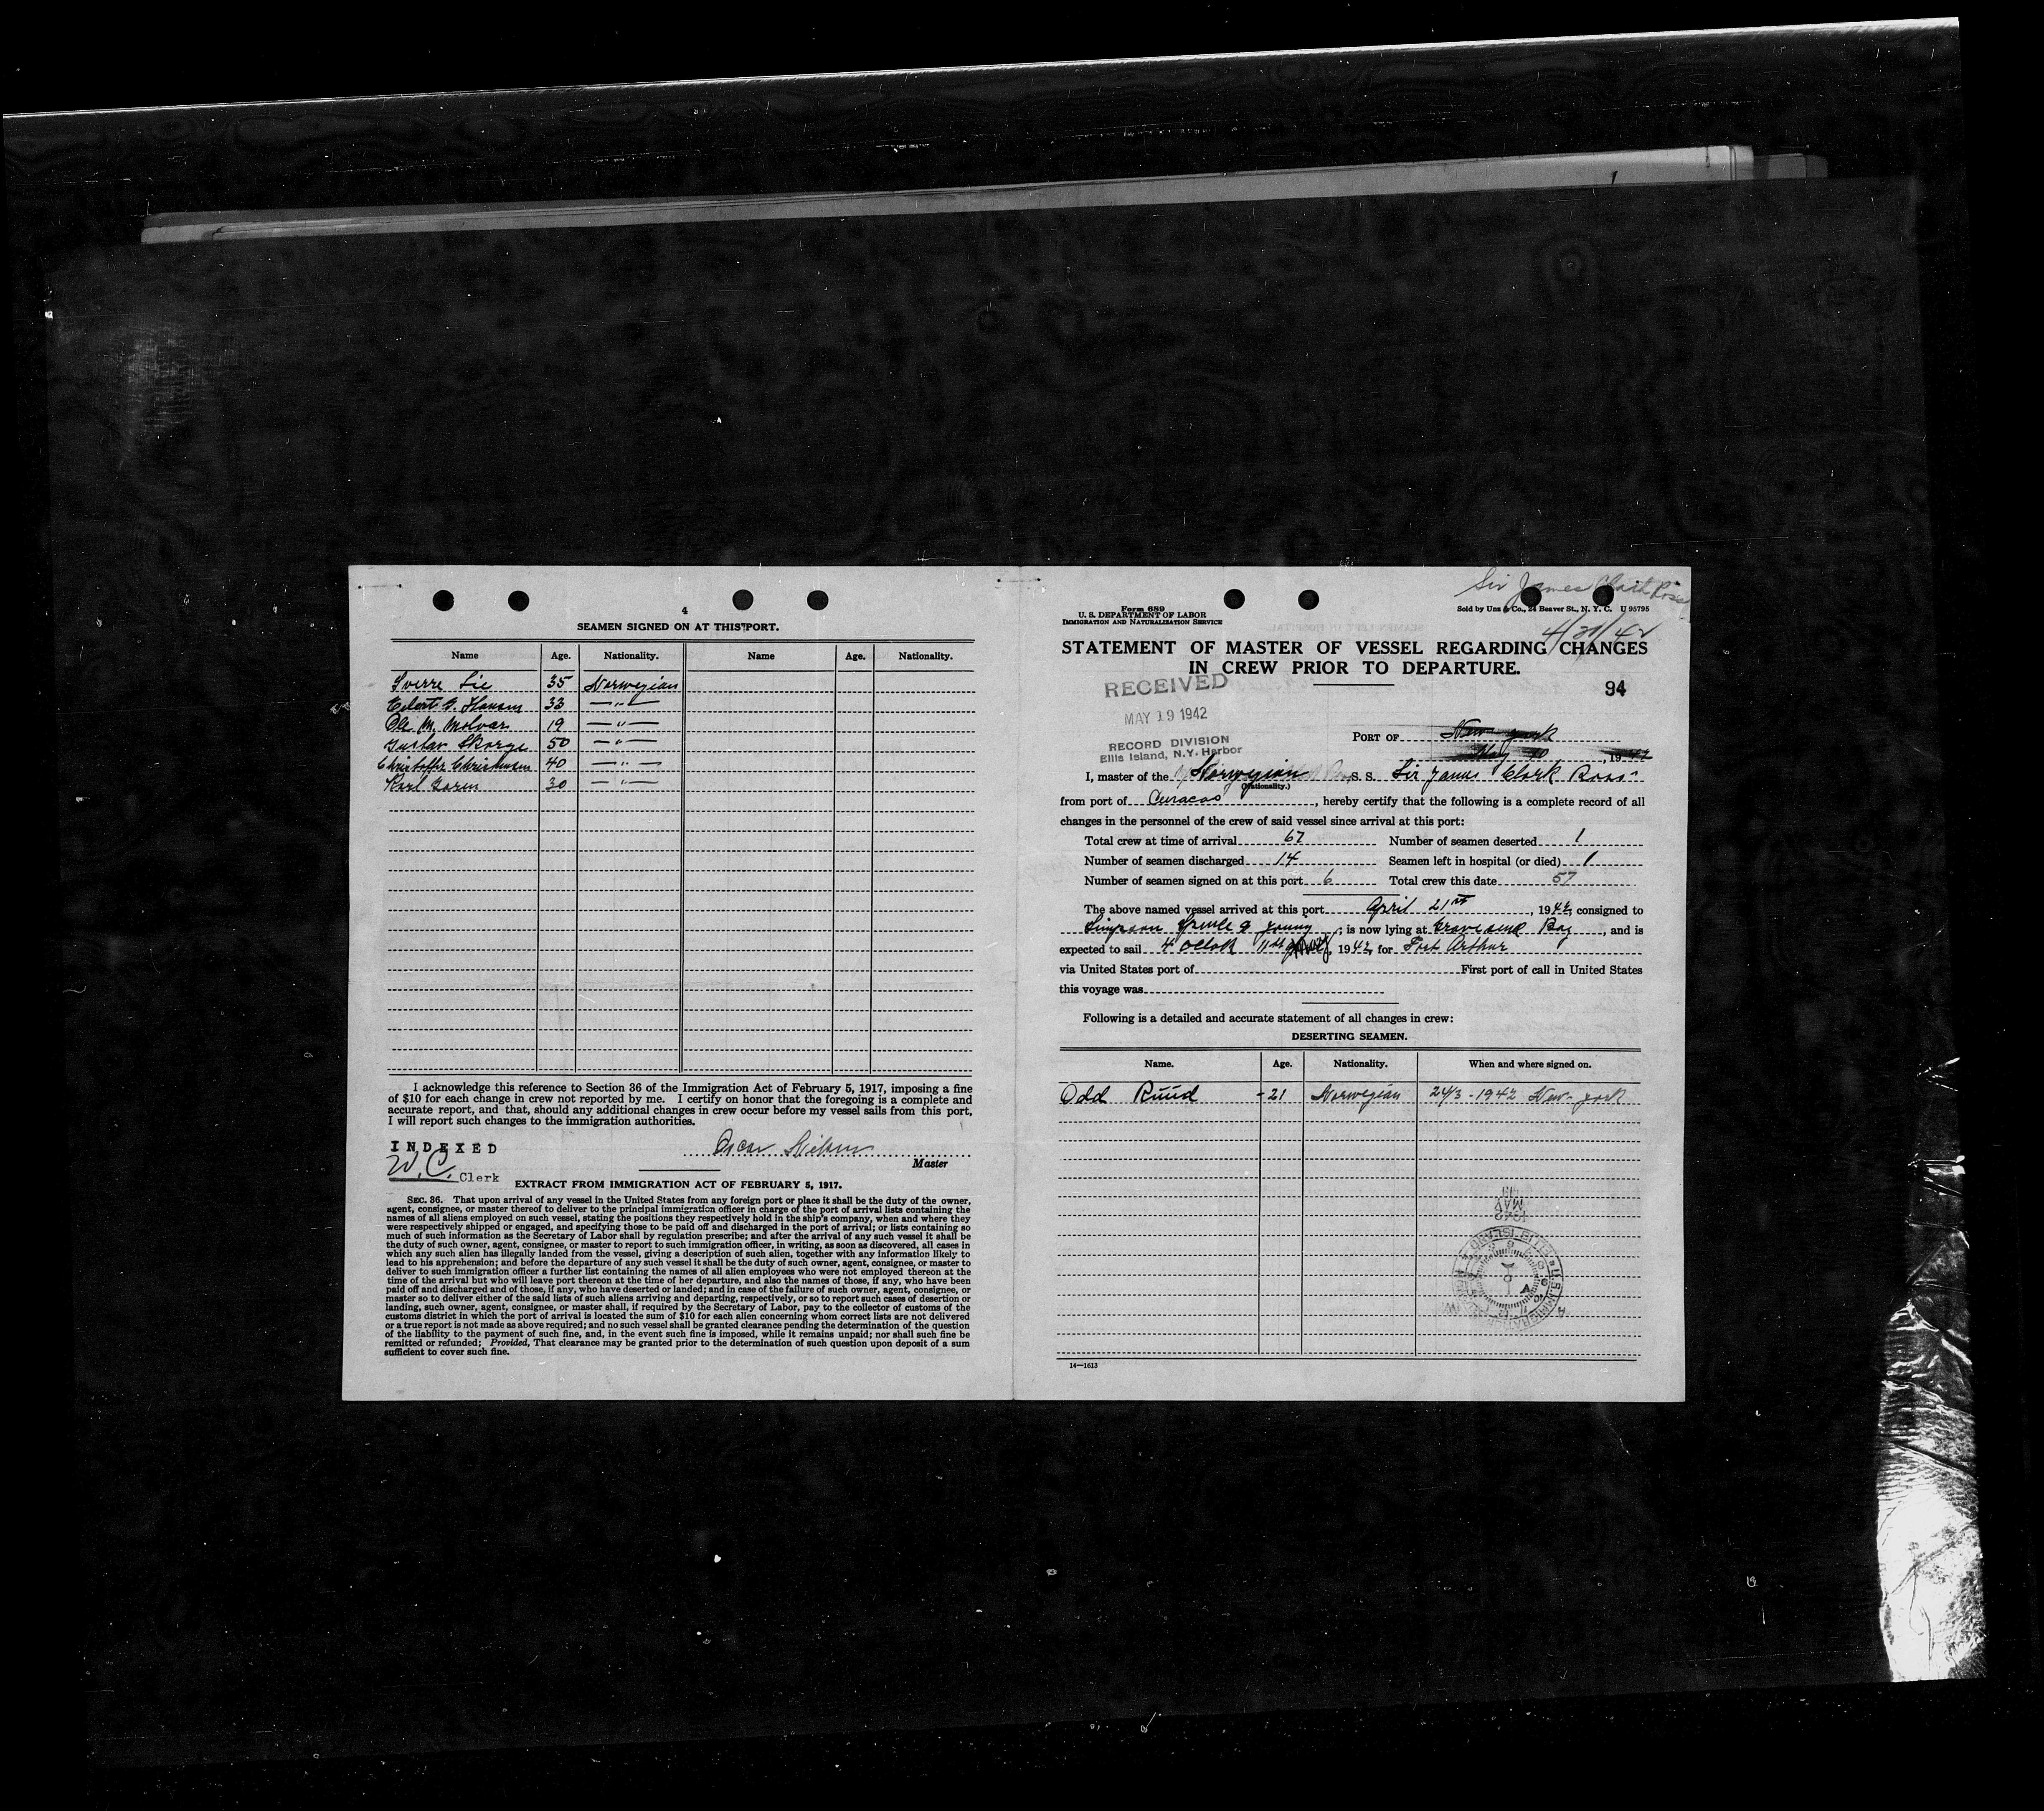 4
SEAMEN SIGNED ON AT THIS PORT.
Name Age. Nationality. Name Age. Nationality.
Sverre Lie 35 Norwegian
Hansen 33 — " —
Ole M. Molvar 19 — " —
Gustav Skorge 50 — " —
Christoffer Christensen 40 — " —
Karl 30 — " —
I acknowledge this reference to Section 36 of the Immigration Act of February 5, 1917, imposing a fine
of $10 for each change in crew not reported by me. I certify on honor that the foregoing is a complete and
accurate report, and that, should any additional changes in crew occur before my vessel sails from this port,
I will report such changes to the immigration authorities.
INDEXED
W.C. Clerk
Oscar Nilsen
Master
EXTRACT FROM IMMIGRATION ACT OF FEBRUARY 5, 1917.
SEC. 36. That upon arrival of any vessel in the United States from any foreign port or place it shall be the duty of the owner,
agent, consignee, or master thereof to deliver to the principal immigration officer in charge of the port of arrival lists containing the
names of all aliens employed on such vessel, stating the positions they respectively hold in the ship's company, when and where they
were respectively shipped or engaged, and specifying those to be paid off and discharged in the port of arrival; or lists containing so
much of such information as the Secretary of Labor shall by regulation prescribe; and after the arrival of any such vessel it shall be
the duty of such owner, agent, consignee, or master to report to such immigration officer, in writing, as soon as discovered, all cases in
which any such alien has illegally landed from the vessel, giving a description of such alien, together with any information likely to
lead to his apprehension; and before the departure of any such vessel it shall be the duty of such owner, agent, consignee, or master to
deliver to such immigration officer a further list containing the names of all alien employees who were not employed thereon at the
time of the arrival but who will leave port thereon at the time of her departure, and also the names of those, if any, who have been
paid off and discharged and of those, if any, who have deserted or landed; and in case of the failure of such owner, agent, consignee, or
master so to deliver either of the said lists of such aliens arriving and departing, respectively, or so to report such cases of desertion or
landing, such owner, agent, consignee, or master shall, if required by the Secretary of Labor, pay to the collector of customs of the
customs district in which the port of arrival is located the sum of $10 for each alien concerning whom correct lists are not delivered
or a true report is not made as above required; and no such vessel shall be granted clearance pending the determination of the question
of the liability to the payment of such fine, and, in the event such fine is imposed, while it remains unpaid; nor shall such fine be
remitted or refunded; Provided, That clearance may be granted prior to the determination of such question upon deposit of a sum
sufficient to cover such fine.
Sir James Clark Ross
4/21/42
Form 689
U. S. DEPARTMENT OF LABOR
IMMIGRATION AND NATURALIZATION SERVICE
Sold by Unz & Co., 24 Beaver St., N. Y. C. U 95795
STATEMENT OF MASTER OF VESSEL REGARDING CHANGES
IN CREW PRIOR TO DEPARTURE.
94
RECEIVED
MAY 19 1942
RECORD DIVISION
Ellis Island, N.Y. Harbor
PORT OF New York
May 10, 1942
I, master of the Norwegian S. S. Sir James Clark Ross
(Nationality.)
from port of Curacao, hereby certify that the following is a complete record of all
changes in the personnel of the crew of said vessel since arrival at this port:
Total crew at time of arrival 67 Number of seamen deserted 1
Number of seamen discharged 14 Seamen left in hospital (or died) 1
Number of seamen signed on at this port 6 Total crew this date 57
The above named vessel arrived at this port April 21st, 1942, consigned to
Simpson Spence & Young; is now lying at Gravesend Bay, and is
expected to sail 4 oclock 11th May, 1942, for Port Arthur
via United States port of First port of call in United States
this voyage was
Following is a detailed and accurate statement of all changes in crew:
DESERTING SEAMEN.
Name. Age. Nationality. When and where signed on.
Odd Ruud - 21 Norwegian 24/3 - 1942 New-York
1942
MAY
19
14—1613